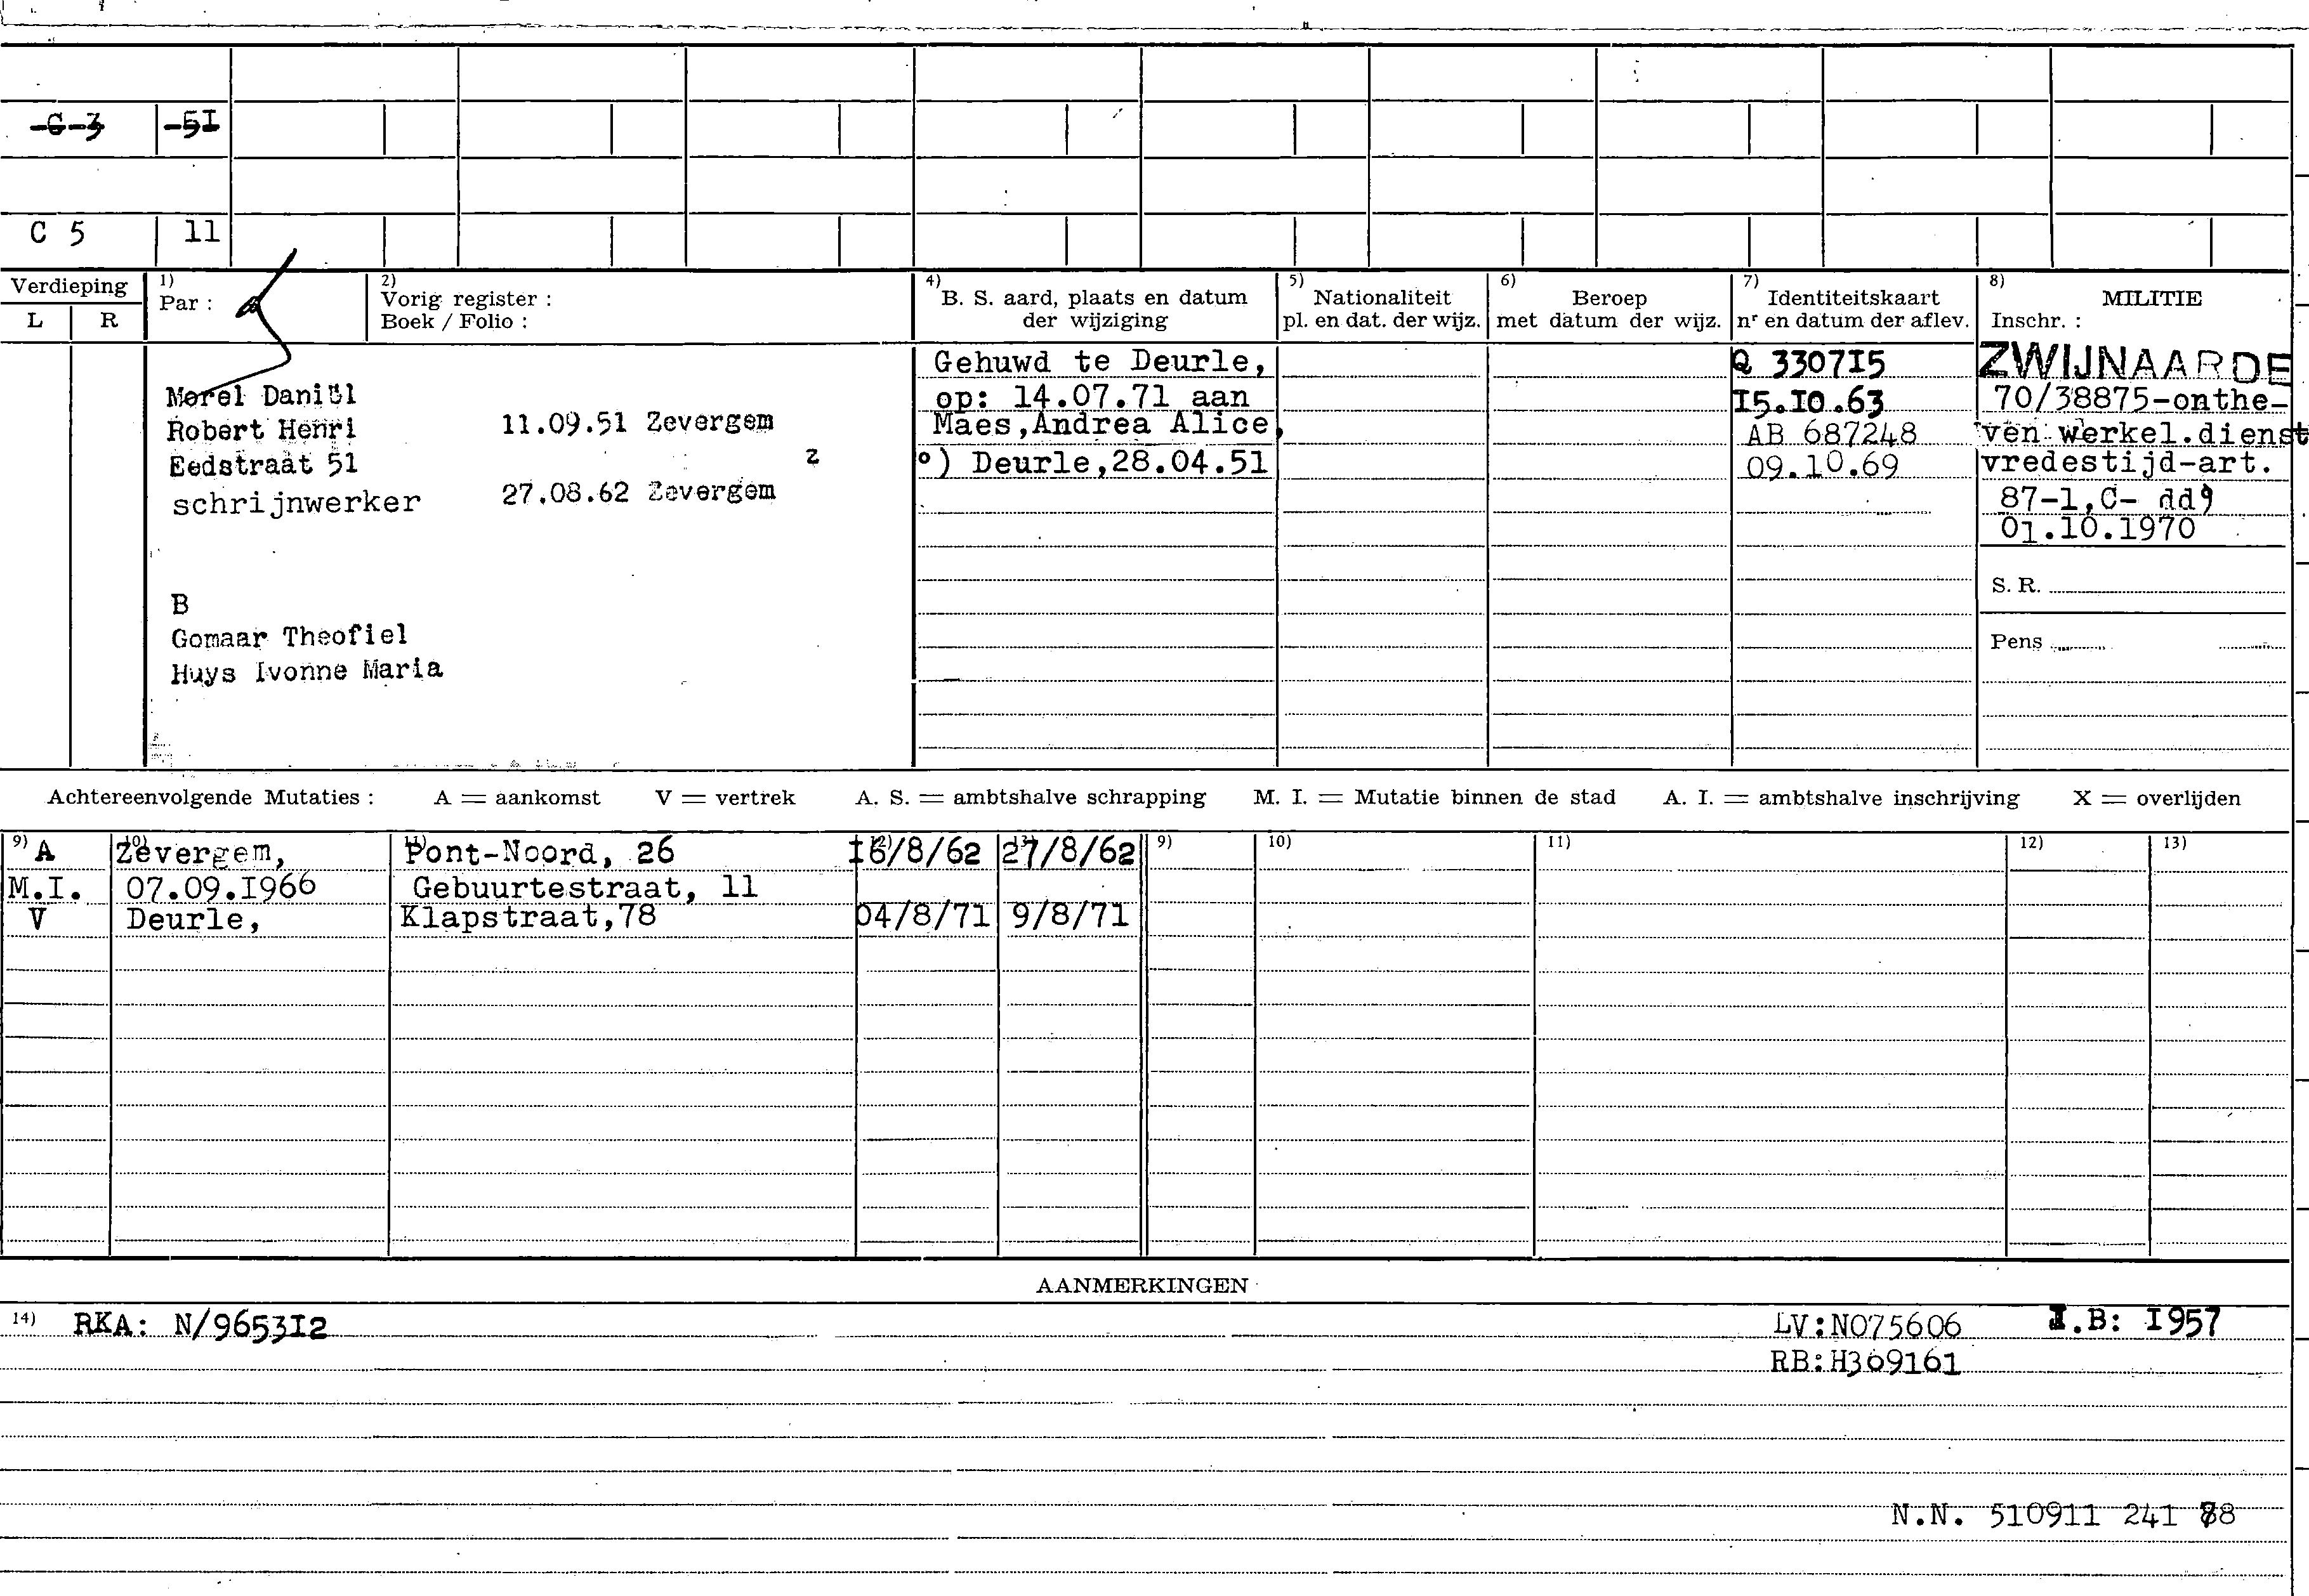 -C-3 -5I
C 5 11
Verdieping
L R
1) Par :
2) Vorig register :
Boek / Folio :
4) B. S. aard, plaats en datum
der wijziging
5) Nationaliteit
pl. en dat. der wijz.
6) Beroep
met datum der wijz.
7) Identiteitskaart
nr en datum der aflev.
8) MILITIE
Inschr. :
Morel Daniël
Robert Henri 11.09.51 Zevergem
Eedstraat 51 z
schrijnwerker 27.08.62 Zevergem
B
Gomaar Theofiel
Huys Ivonne Maria
Gehuwd te Deurle,
op: 14.07.71 aan
Maes,Andrea Alice,
°) Deurle,28.04.51
Q 330715
I5.IO.63
AB 687248
09.10.69
ZWIJNAARDE
70/38875-onthe-
ven werkel.dienst
vredestijd-art.
87-1,C- dd
01.10.1970
S. R.
Pens
Achtereenvolgende Mutaties : A = aankomst V = vertrek A. S. = ambtshalve schrapping M. I. = Mutatie binnen de stad A. I. = ambtshalve inschrijving X = overlijden
9) 10) 11) 12) 13) 9) 10) 11) 12) 13)
A Zevergem, Pont-Noord, 26 16/8/62 27/8/62
M.I. 07.09.I966 Gebuurtestraat, 11
V Deurle, Klapstraat,78 04/8/71 9/8/71
AANMERKINGEN
14) RKA: N/9653I2 LV:N075606 I.B: I957
RB:H369161
N.N. 510911 241 88